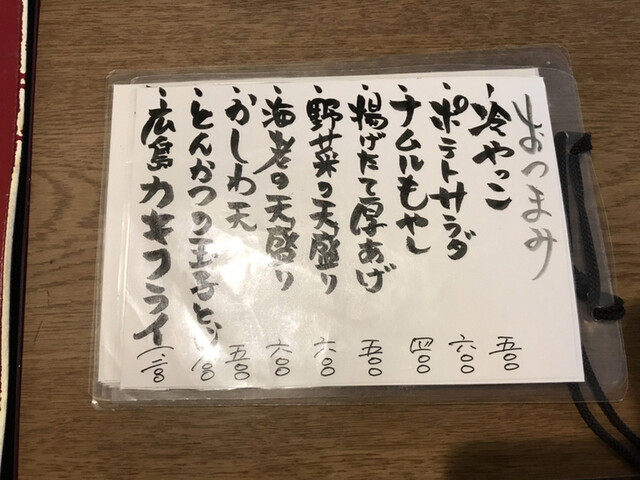 おつまみ
・冷やっこ 五〇〇
・ポテトサラダ 六〇〇
・ナムルもやし 四〇〇
・揚げたて厚あげ 五〇〇
・野菜の天盛り 六〇〇
・海老の天盛り 六〇〇
・かしわ天 五〇〇
・とんかつの玉子とじ
・広島カキフライ